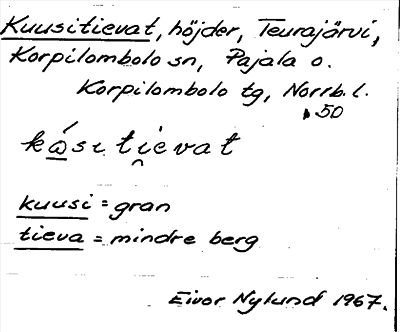 Kuusitievat, höjder, Teurajärvi,
Korpilombolo sn, Pajala o.
Korpilombolo tg, Norrb. l.
50
kọ́si ti̯evat
kuusi = gran
tieva = mindre berg
Eivor Nylund 1967.